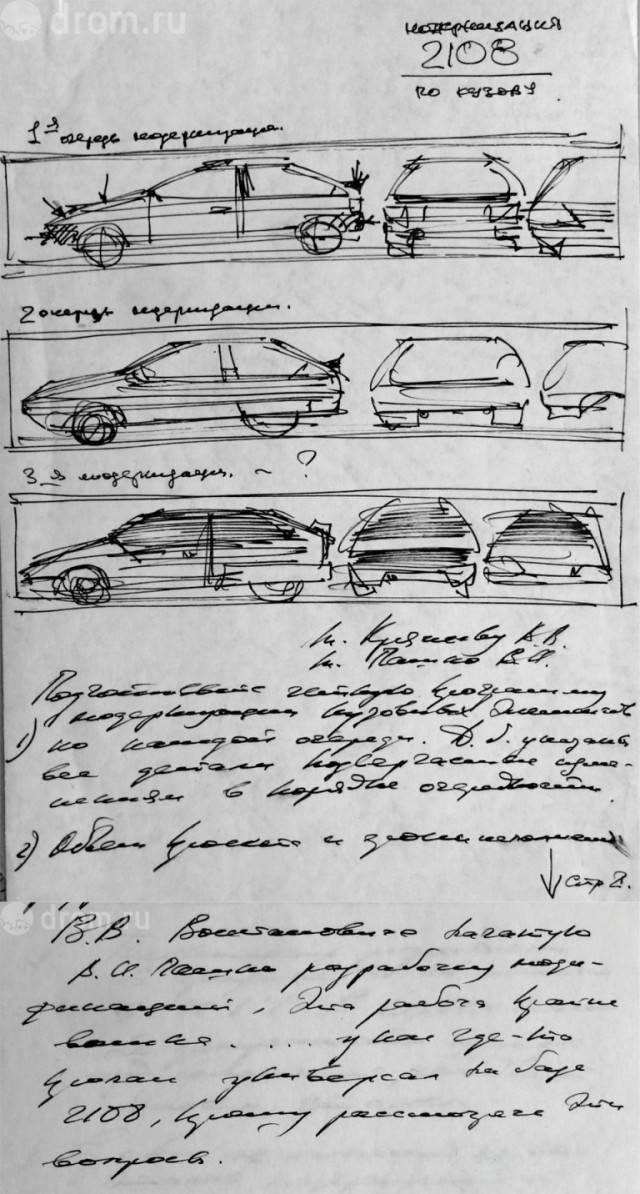 drom.ru
модернизация
2108
по кузову
1я очередь модернизации.
2 очередь модернизации.
3-я модернизация. - ?
т. Пашко В.И.
Подготовьте четкую программу
модернизации кузовных элементов
1) по каждой очереди. Д.б. указаны
все детали подвергаемые изме-
нениям в порядке очередности
2) Объем проекта и сроки исполнения
↓ стр 2.
drom.ru
В.В. Восстановите начатую
В.И. Пашко разработку моди-
фикаций, Эта работа крайне
важна.... у нас где-то
универсал на базе
2108, прошу эти
вопросы.